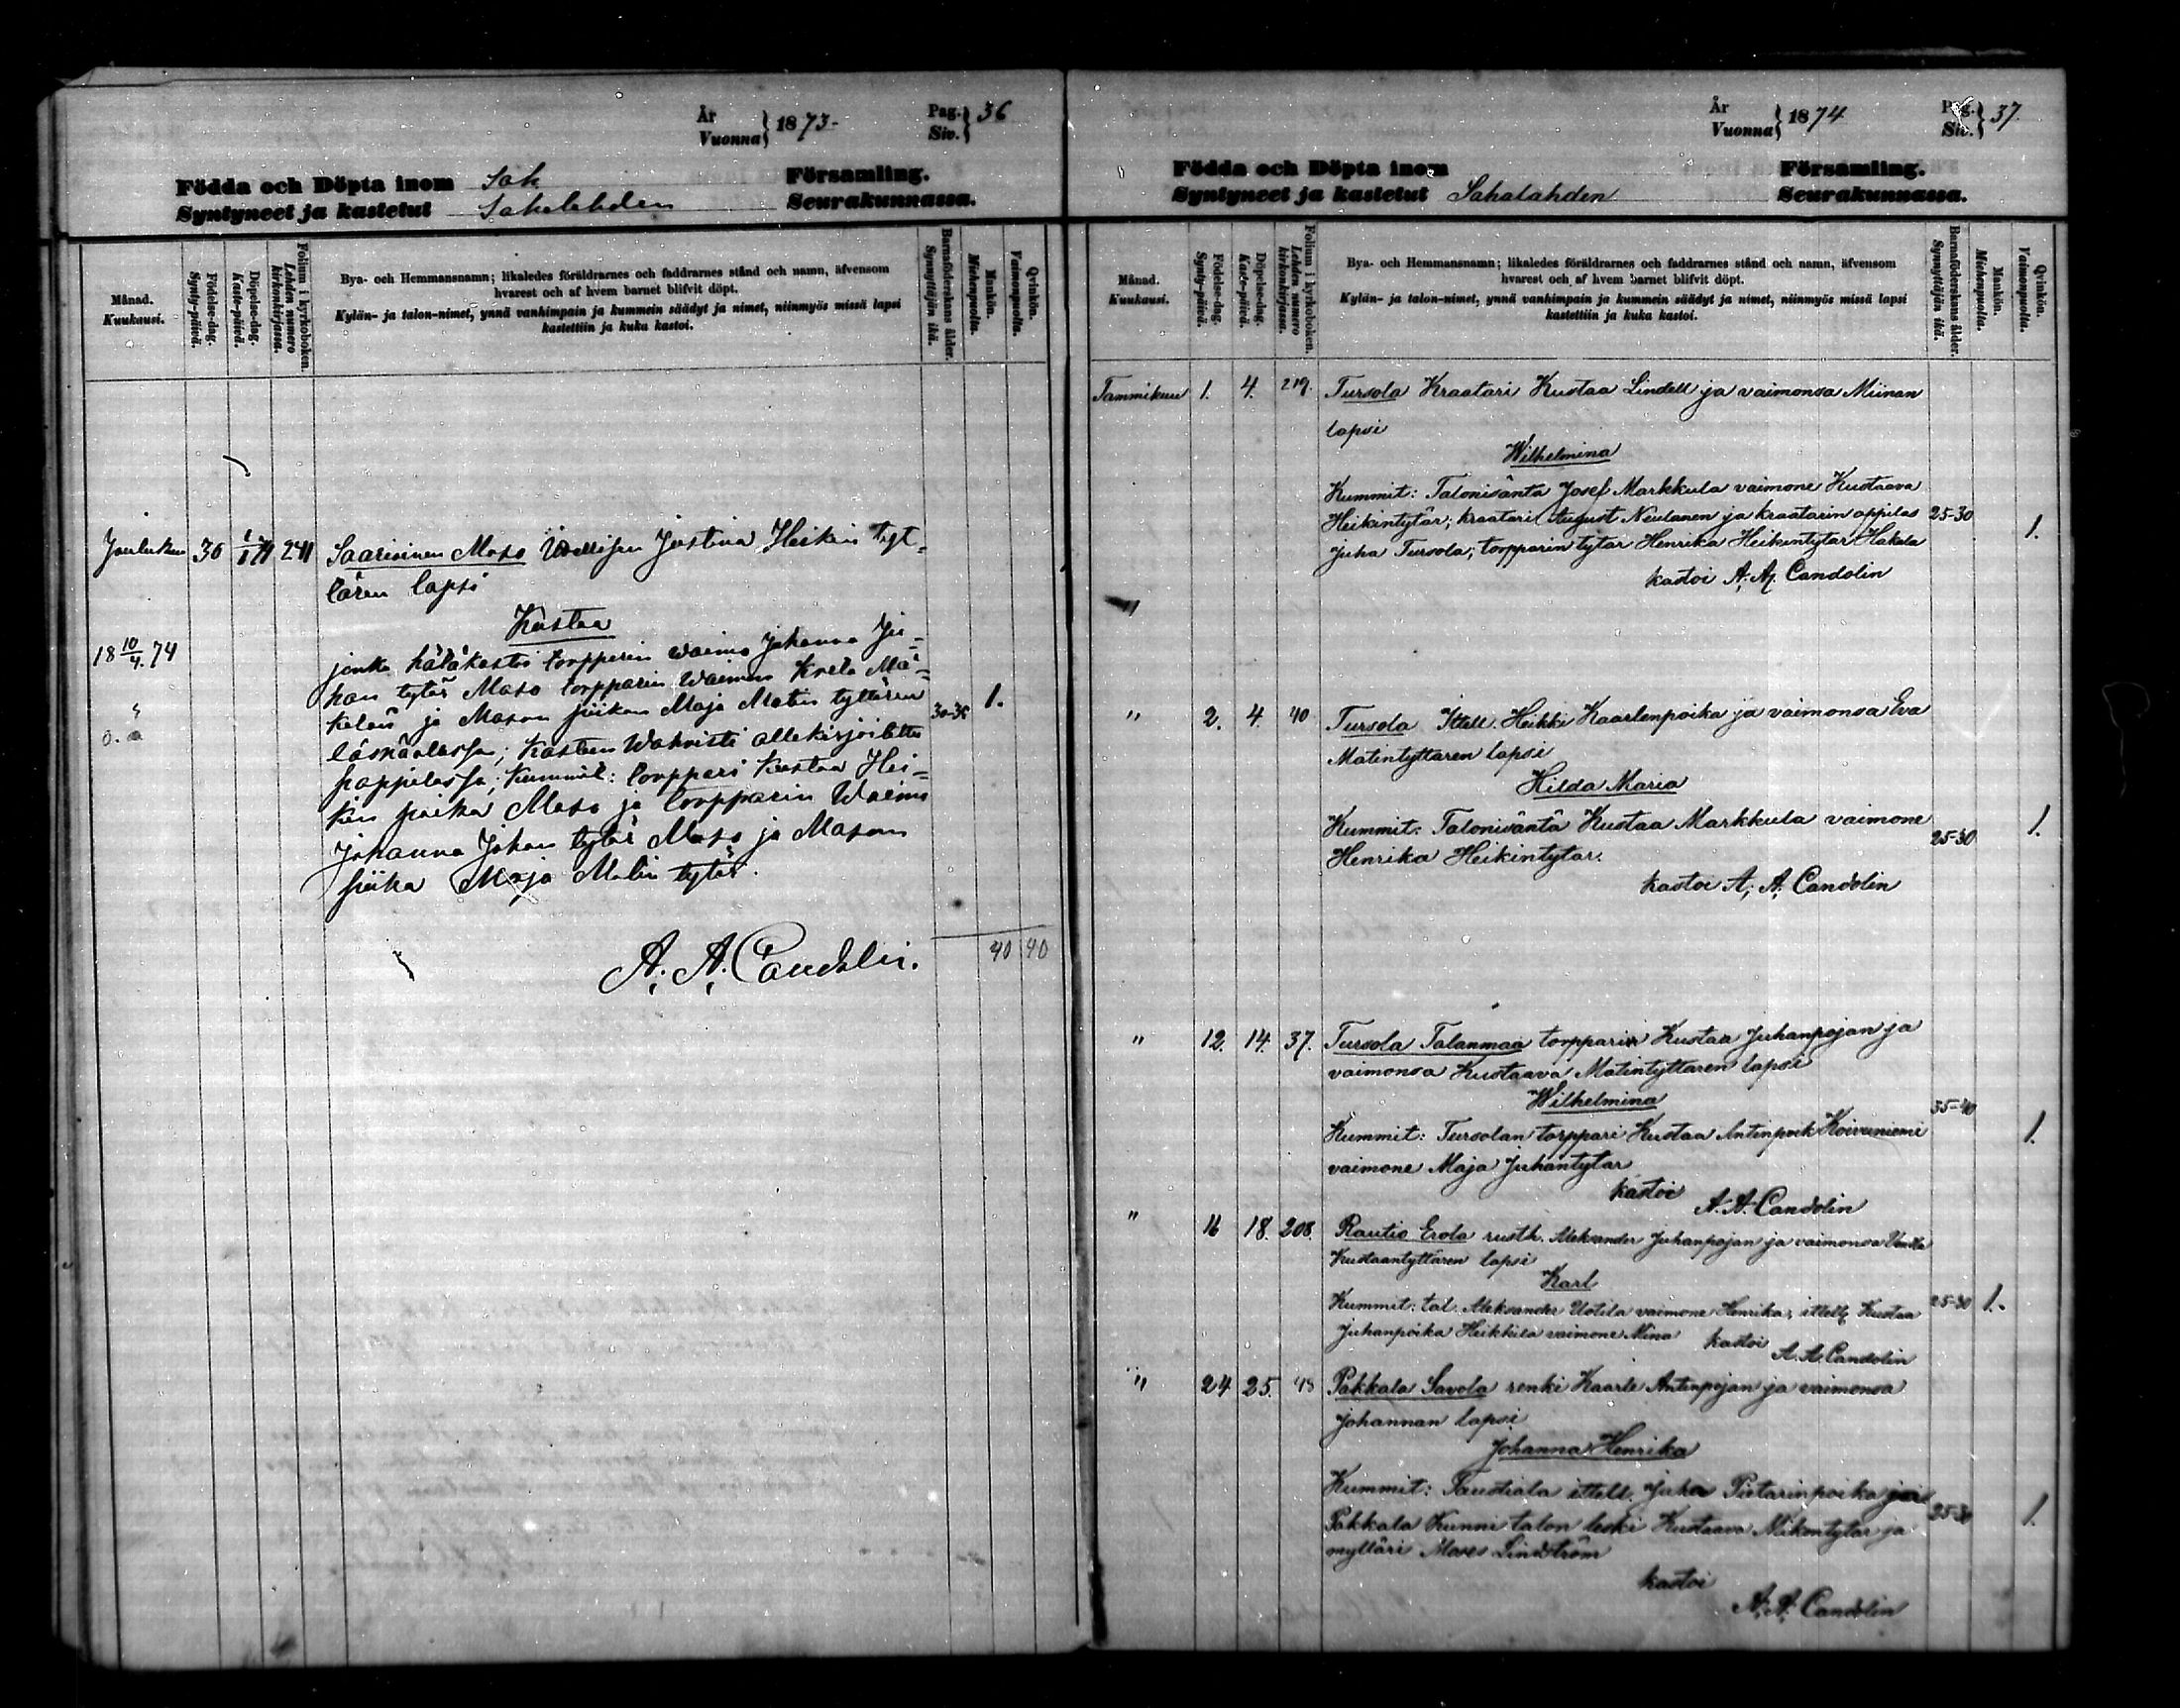 År
Vuonna } 1873-
Pag.
Siv. } 36
Födda och Döpta inom Sah Församling.
Syntyneet ja kastetut Sahalahden Seurakunnassa.
Månad.
Kuukausi.
Födelse-dag.
Synty-päivä.
Döpelse-dag.
Kaste-päivä.
Folium i kyrkoboken.
Lehden numero
kirkonkirjassa.
Bya- och Hemmansnamn; likaledes föräldrarnes och faddrarnes stånd och namn, äfvensom
hvarest och af hvem barnet blifvit döpt.
Kylän- ja talon-nimet, ynnä vanhimpain ja kummein säädyt ja nimet, niinmyös missä lapsi
kastettiin ja kuka kastoi.
Barnaföderskans ålder.
Synnyttäjän ikä.
Mankön.
Miehenpuolta.
Qvinkön.
Vaimonpuolta.
Joulukuu 30 241 Saarioinen Maso Justina Heikin tyt-
tären lapsi
Kustaa
18 10/4. 74
jonka hätäkastoi torpparin waimo Johanna Ju-
han tytär Maso torpparin Waimon Mä-
kelän ja Mason piikan Maja Matin tyttären
läsnäolessa; kasteen Wahvisti allekirjoitettu
pappilassa; Kummit: torppari Kustaa Hei-
kin poika Maso ja torpparin Waimo
Johanna Johan tytär Maso ja Mason
piika Maja Matin tytär.
30-35 1.
A. A. Candolin.
40 40
År
Vuonna } 1874
Pag.
Siv. } 37.
Födda och Döpta inom Församling.
Syntyneet ja kastetut Sahalahden Seurakunnassa.
Månad.
Kuukausi.
Födelse-dag.
Synty-päivä.
Döpelse-dag.
Kaste-päivä.
Folium i kyrkoboken.
Lehden numero
kirkonkirjassa.
Bya- och Hemmansnamn; likaledes föräldrarnes och faddrarnes stånd och namn, äfvensom
hvarest och af hvem barnet blifvit döpt.
Kylän- ja talon-nimet, ynnä vanhimpain ja kummein säädyt ja nimet, niinmyös missä lapsi
kastettiin ja kuka kastoi.
Barnaföderskans ålder.
Synnyttäjän ikä.
Mankön.
Miehenpuolta.
Qvinkön.
Vaimonpuolta.
Tammikuu 1. 4. 219. Tursola Kraatari Kustaa Lindell ja vaimonsa Miinan
lapsi
Wilhelmina
Kummit: Talonisäntä Josef Markkula vaimone Kustaava
Heikintytär; kraatari August Neulanen ja kraatarin oppilas 25-30
Juha Tursola; torpparin tytar Henrika Heikintytar Hakala 1.
kastoi A. A. Candolin
"
" 2. 4. 40 Tursola Ittell. Heikki Kaarlenpoika ja vaimonsa Eva
Matintyttaren lapsi
Hilda Maria
Kummit: Talonisäntä Kustaa Markkula vaimone 1.
Henrika Heikintytar. 25-30
kastoi A. A. Candolin
" 12. 14. 37. Tursola Talanmaa torpparin Kustaa Juhanpojan ja
vaimonsa Kustaava Matintyttaren lapsi
Wilhelmina
35-40
Kummit: Tursolan torppari Kustaa Antinpoik Koivuniemi 1.
vaimone Maja Juhantytar
kastoi A. A. Candolin
" 16 18. 208. Rautio Erola rusth. Aleksander Juhanpojan ja vaimonsa
Kustaantyttären lapsi
Karl
Kummit: tal. Aleksander Uotila vaimone Henrika; ittell Kustaa 25-30 1.
Juhanpoika Heikkila vaimone Mina kastoi
A. A. Candolin
" 24 25. 43 Pakkala Savola renki Kaarle Antinpojan ja vaimonsa
Johannan lapsi
Johanna Henrika
Kummit: Taustiala ittell. Juha Pietarinpoika ja
Pakkala Kunni talon leski Kustaava Mikontytar ja 25-30 1.
mylläri Moses Lindström
kastoi
A. A. Candolin